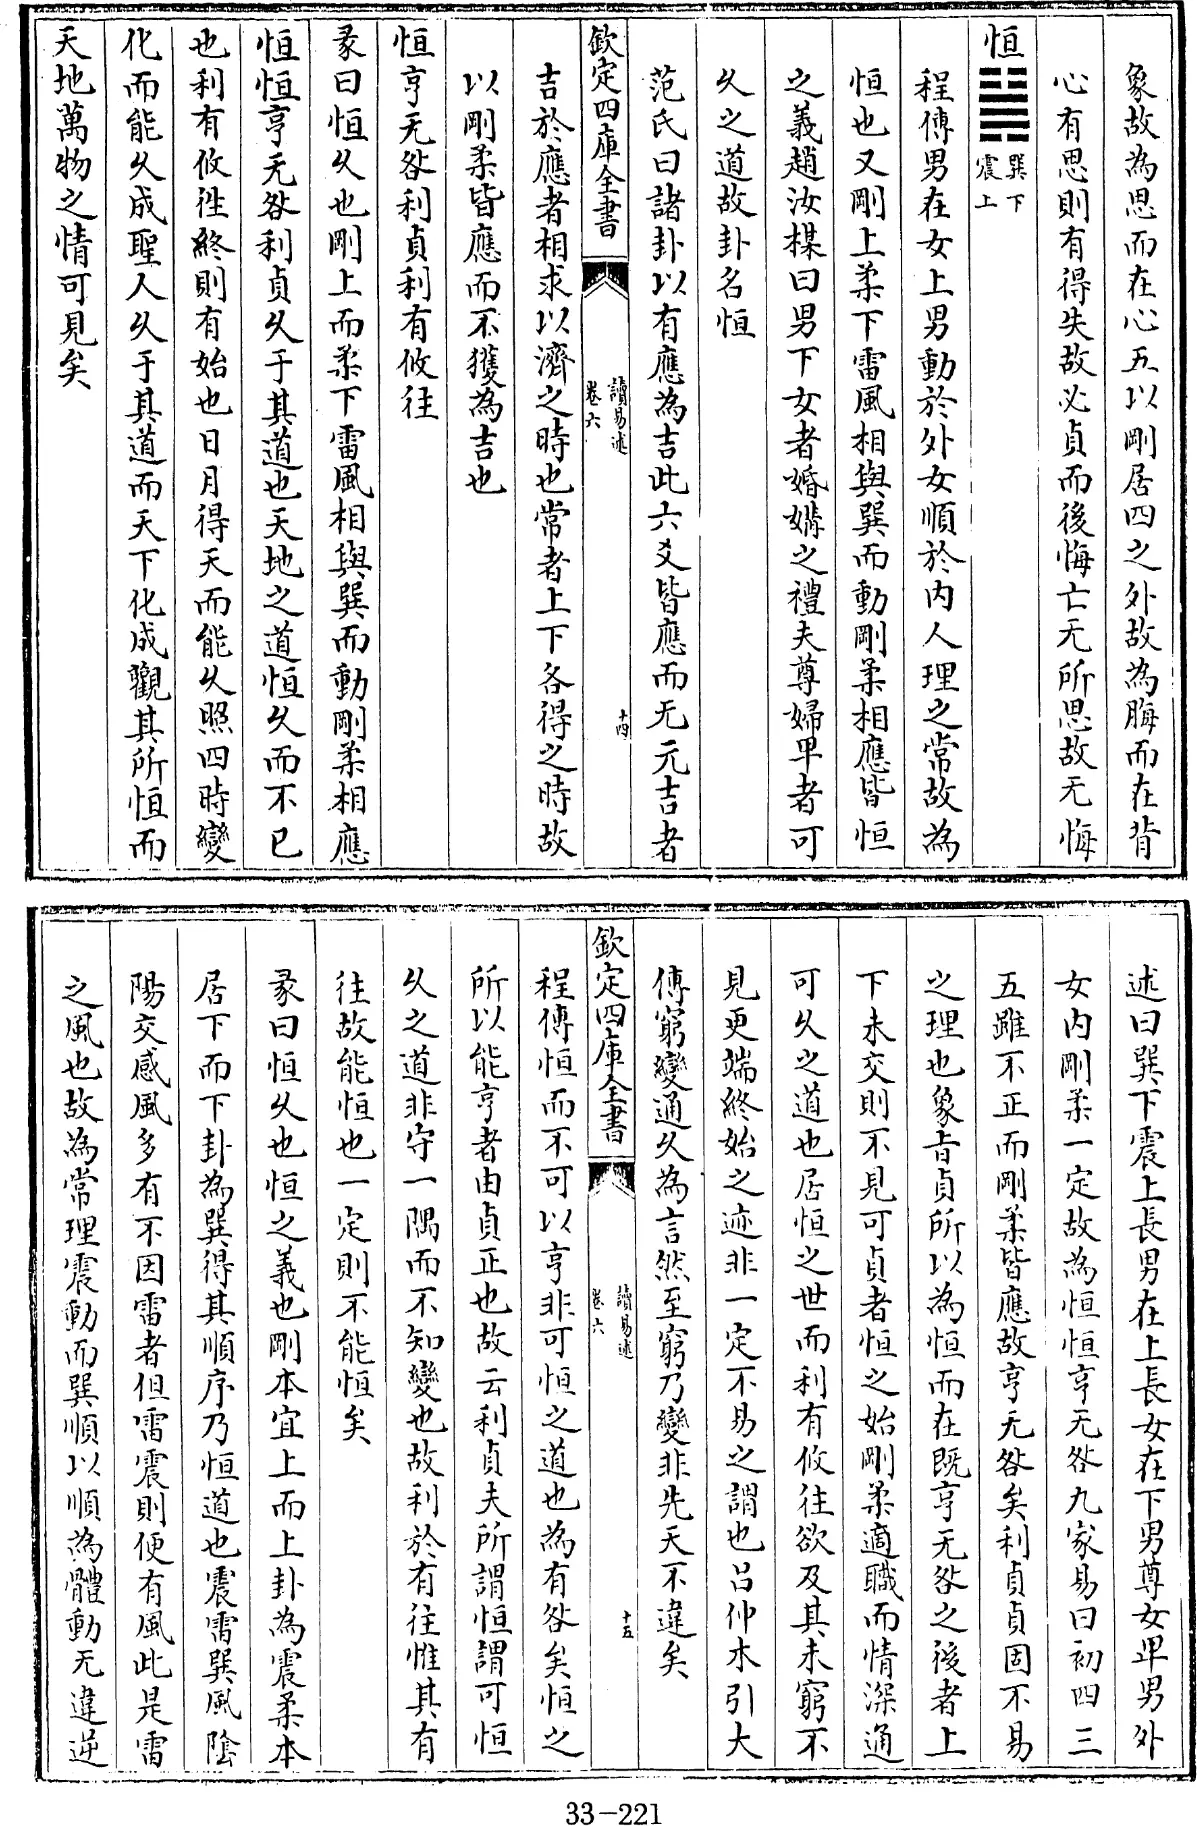 象故為思而在心五以剛居四之外故為脢而在背
心有思則有得失故必貞而後悔亡无所思故无悔
恒 巽下震上
程傳男在女上男動於外女順於内人理之常故為
恒也又剛上柔下雷風相與巽而動剛柔相應皆恒
之義趙汝楳曰男下女者婚媾之禮夫尊婦卑者可
久之道故卦名恒
范氏曰諸卦以有應為吉此六爻皆應而无元吉者
欽定四庫全書 讀易述 卷六 十四
吉於應者相求以濟之時也常者上下各得之時故
以剛柔皆應而不獲為吉也
恒亨无咎利貞利有攸往
彖曰恒久也剛上而柔下雷風相與巽而動剛柔相應
恒恒亨无咎利貞久于其道也天地之道恒久而不已
也利有攸往終則有始也日月得天而能久照四時變
化而能久成聖人久于其道而天下化成觀其所恒而
天地萬物之情可見矣
述曰巽下震上長男在上長女在下男尊女卑男外
女内剛柔一定故為恒恒亨无咎九家易曰初四三
五雖不正而剛柔皆應故亨无咎矣利貞貞固不易
之理也象旨貞所以為恒而在既亨无咎之後者上
下未交則不見可貞者恒之始剛柔適職而情深通
可久之道也居恒之世而利有攸往欲及其未窮不
見更端終始之迹非一定不易之謂也吕仲木引大
傳窮變通久為言然至窮乃變非先天不違矣
欽定四庫全書 讀易述 卷六 十五
程傳恒而不可以亨非可恒之道也為有咎矣恒之
所以能亨者由貞正也故云利貞夫所謂恒謂可恒
久之道非守一隅而不知變也故利於有往惟其有
往故能恒也一定則不能恒矣
彖曰恒久也恒之義也剛本宜上而上卦為震柔本
居下而下卦為巽得其順序乃恒道也震雷巽風陰
陽交感風多有不因雷者但雷震則便有風此是雷
之風也故為常理震動而巽順以順為體動无違逆
33-221